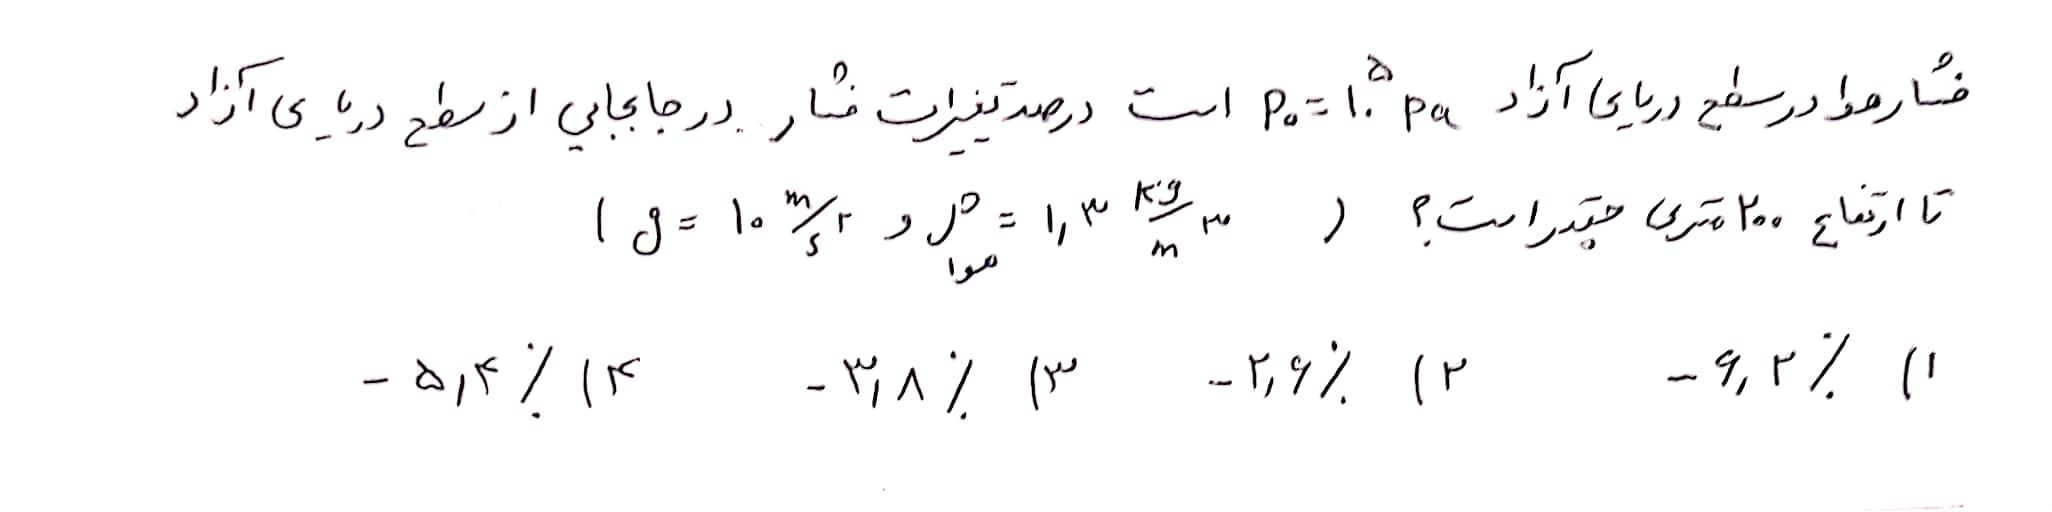 فشار هوا در سطح دریای آزاد P₀ = ۱۰⁵ pa است درصد تغییرات فشار در جابجایی از سطح دریای آزاد
تا ارتفاع ۲۰۰ متری چقدر است؟ ( ρهوا = ۱٫۳ kg/m³ و g = ۱۰ m/s² )
۱) -۶٫۲٪ ۲) -۲٫۶٪ ۳) -۳٫۸٪ ۴) -۵٫۴٪